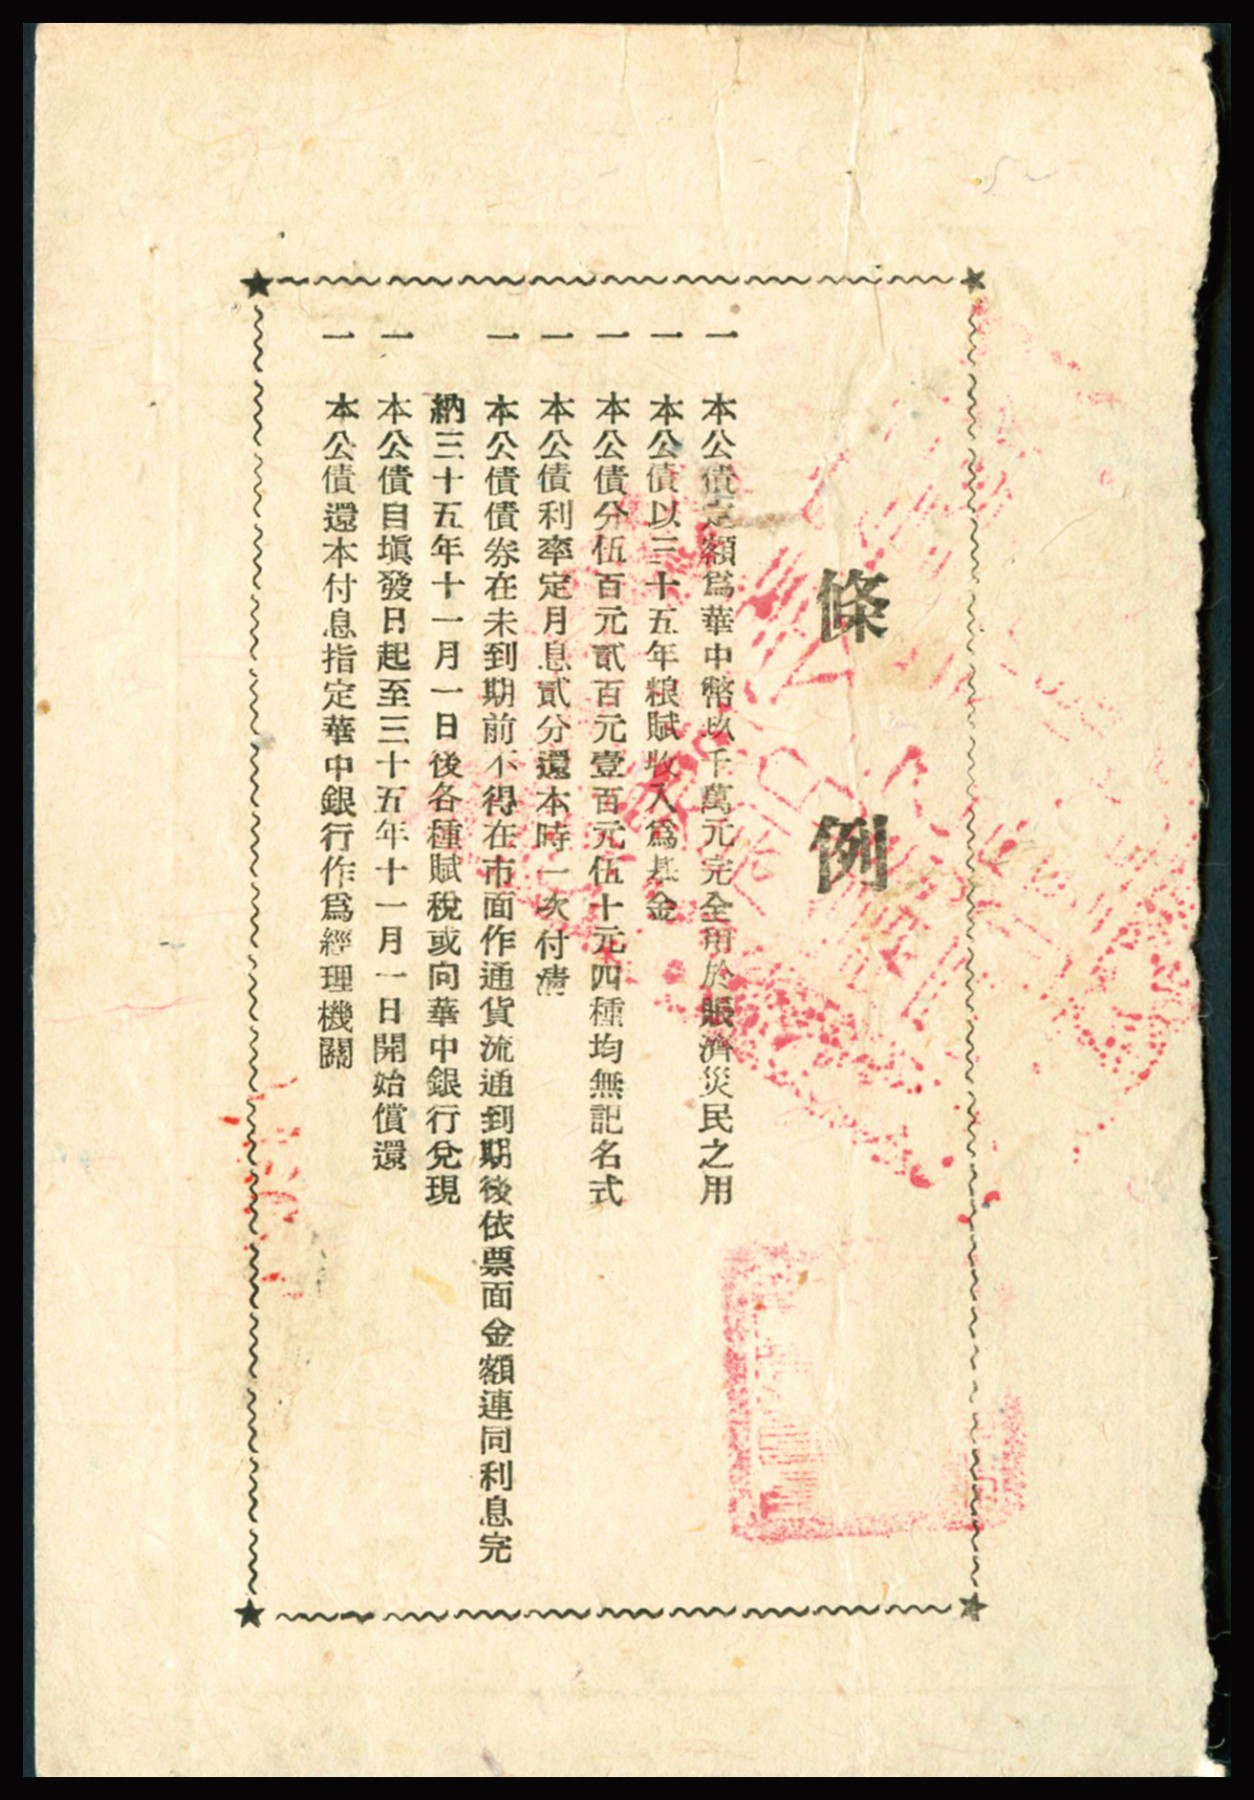 條例
一 本公債定額爲華中幣玖千萬元完全用於賑濟災民之用
一 本公債以三十五年粮賦收入爲基金
一 本公債分伍百元貳百元壹百元伍十元四種均無記名式
一 本公債利率定月息貳分還本時一次付清
一 本公債債券在未到期前不得在市面作通貨流通到期後依票面金額連同利息完
納三十五年十一月一日後各種賦稅或向華中銀行兌現
一 本公債自塡發日起至三十五年十一月一日開始償還
一 本公債還本付息指定華中銀行作爲經理機關